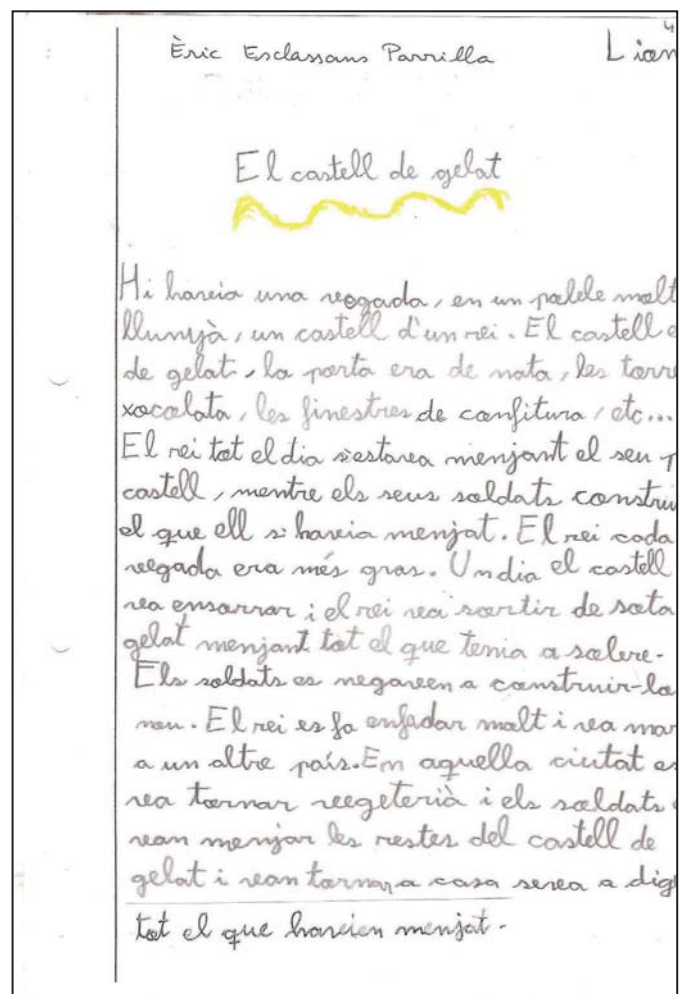 Èric Esclassans Parrilla
El castell de gelat
Hi havia una vegada, en un poble molt
llunyà, un castell d'un rei. El castell e
de gelat, la porta era de nata, les torre
xocolata, les finestres de confitura, etc...
El rei tot el dia s'estava menjant el seu p
castell, mentre els seus soldats construi
el que ell s'havia menjat. El rei cada
vegada era més gras. Un dia el castell
va ensorrar i el rei va sortir de sota
gelat menjant tot el que tenia a sobre.
Els soldats es negaven a construir-lo
nou. El rei es fa enfadar molt i va mar
a un altre país. Em aquella ciutat es
va tornar vegeterià i els soldats
van menjar les restes del castell de
gelat i van tornar a casa seva a dig
tot el que havien menjat.